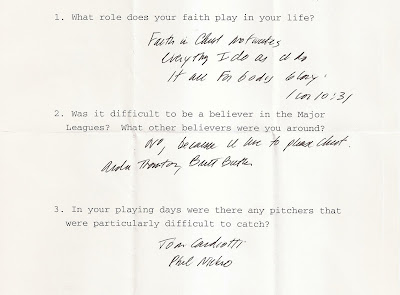 1. What role does your faith play in your life?
Faith in Christ motivates
everything I do as I do
it all for God's glory.
1 Cor 10:31
2. Was it difficult to be a believer in the Major
Leagues? What other believers were you around?
No, because I live to please Christ.
Andre Thornton, Brett Butler
3. In your playing days were there any pitchers that
were particularly difficult to catch?
Tom Candiotti
Phil Niekro